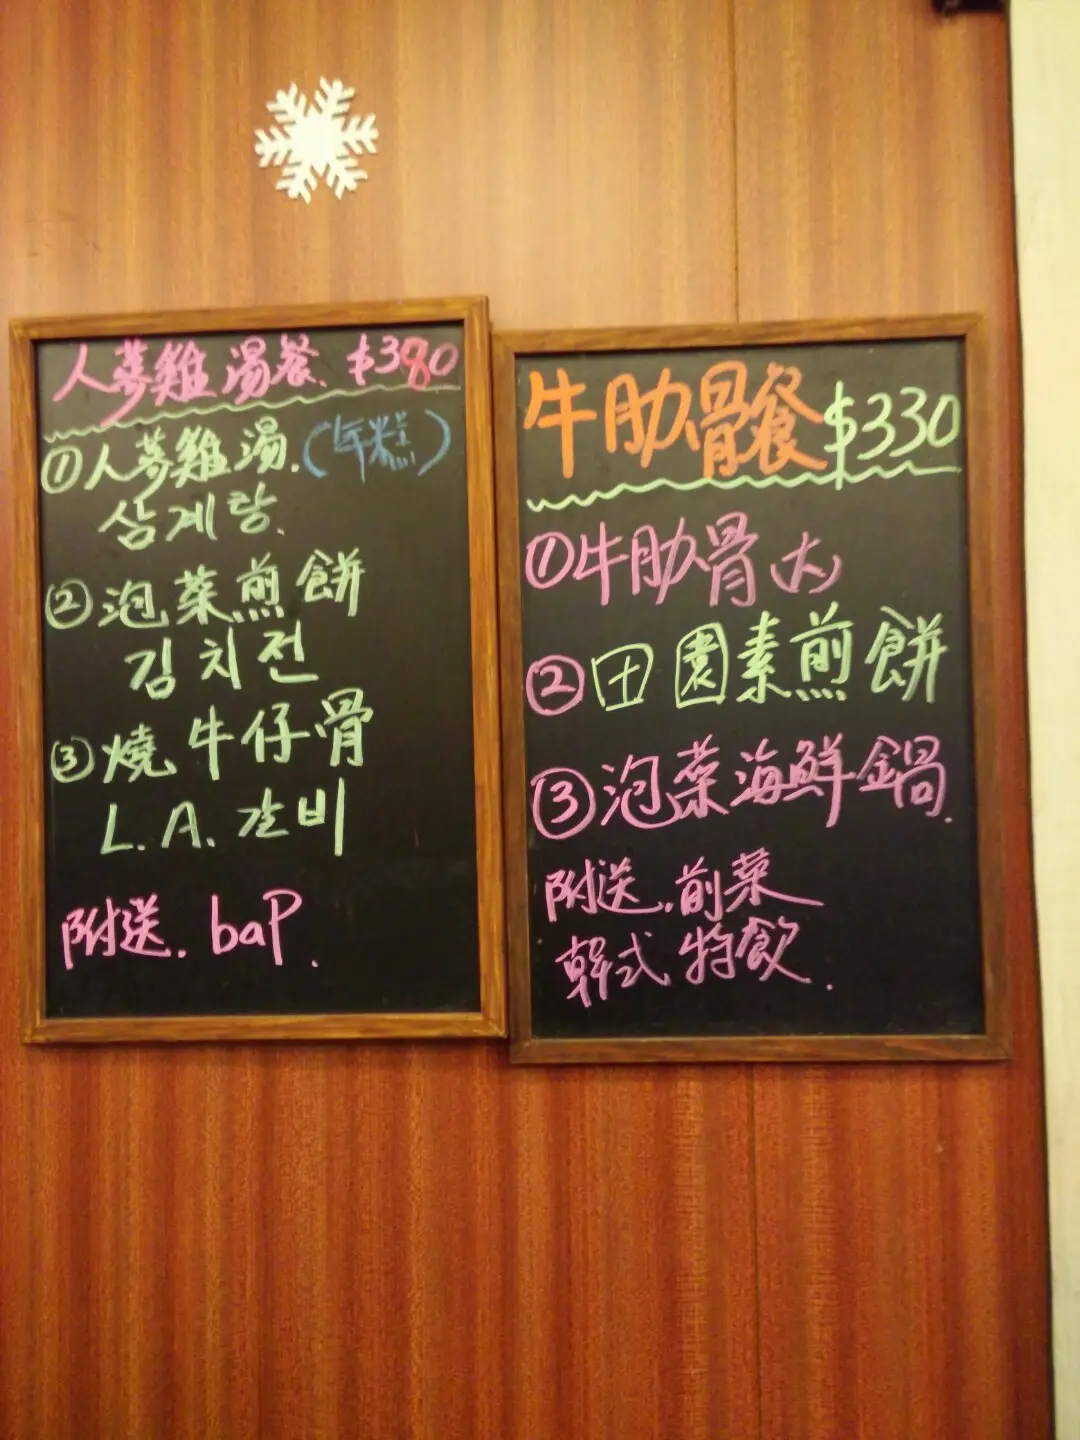 人蔘雞湯餐 $380
①人蔘雞湯.(年糕)
삼계탕.
②泡菜煎餅
김치전
③燒牛仔骨
L.A.갈비
附送. baP.
牛肋骨餐$330
①牛肋骨(大)
②田園素煎餅
③泡菜海鮮鍋.
附送.前菜
韓式特飲.